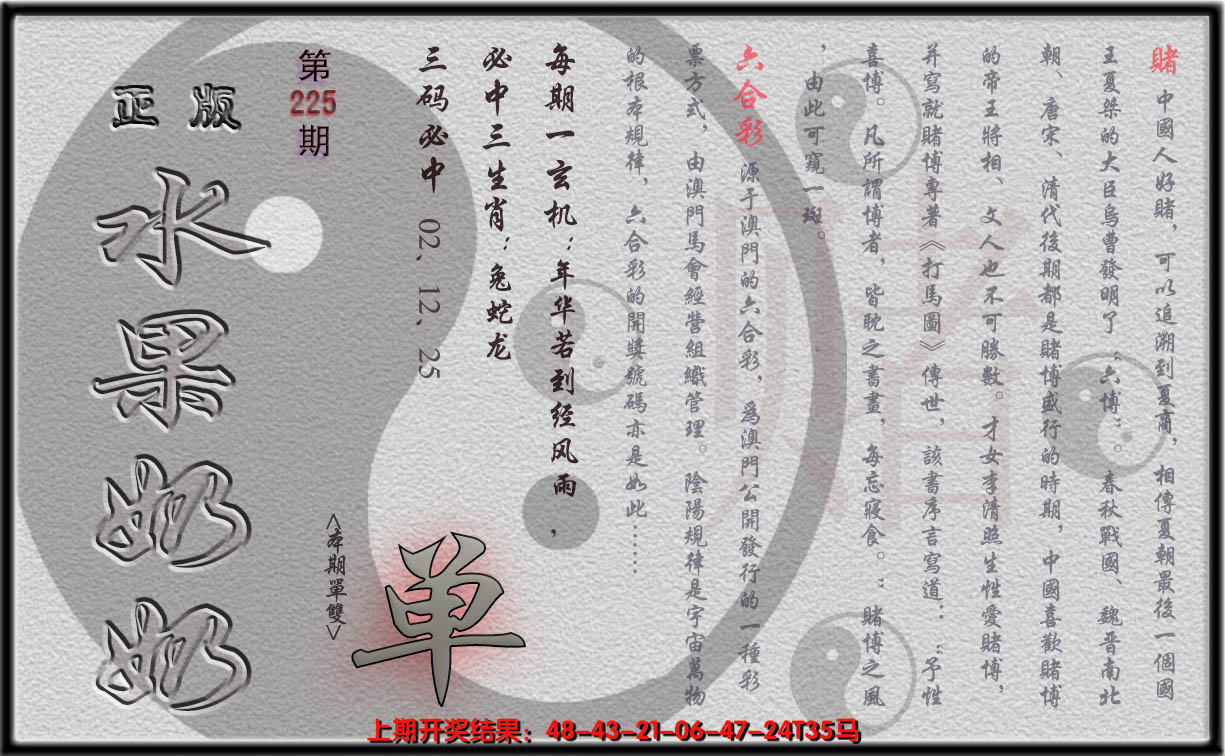 賭 中國人好賭，可以追溯到夏商，相傳夏朝最後一個國
王夏桀的大臣烏曹發明了“六博”。春秋戰國、魏晋南北
朝、唐宋、清代後期都是賭博盛行的時期，中國喜歡賭博
的帝王將相、文人也不可勝數。才女李清照生性愛賭博，
并寫就賭博專著《打馬圖》傳世，該書序言寫道：“予性
喜博。凡所謂博者，皆耽之書晝，每忘寢食。”賭博之風
，由此可窺一斑。
六合彩 源于澳門的六合彩，爲澳門公開發行的一種彩
票方式，由澳門馬會經營組織管理。陰陽規律是宇宙萬物
的根本規律，六合彩的開獎號碼亦是如此……
每期一玄机：年华若到经风雨，
必中三生肖：兔蛇龙
三码必中 02、12、25
第
225
期
<本期單雙>
单
正版
水果奶奶
上期开奖结果：48-43-21-06-47-24T35马